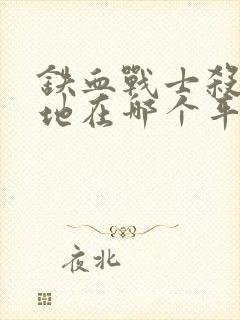 鉄血戰士殺
地在那个车
夜北